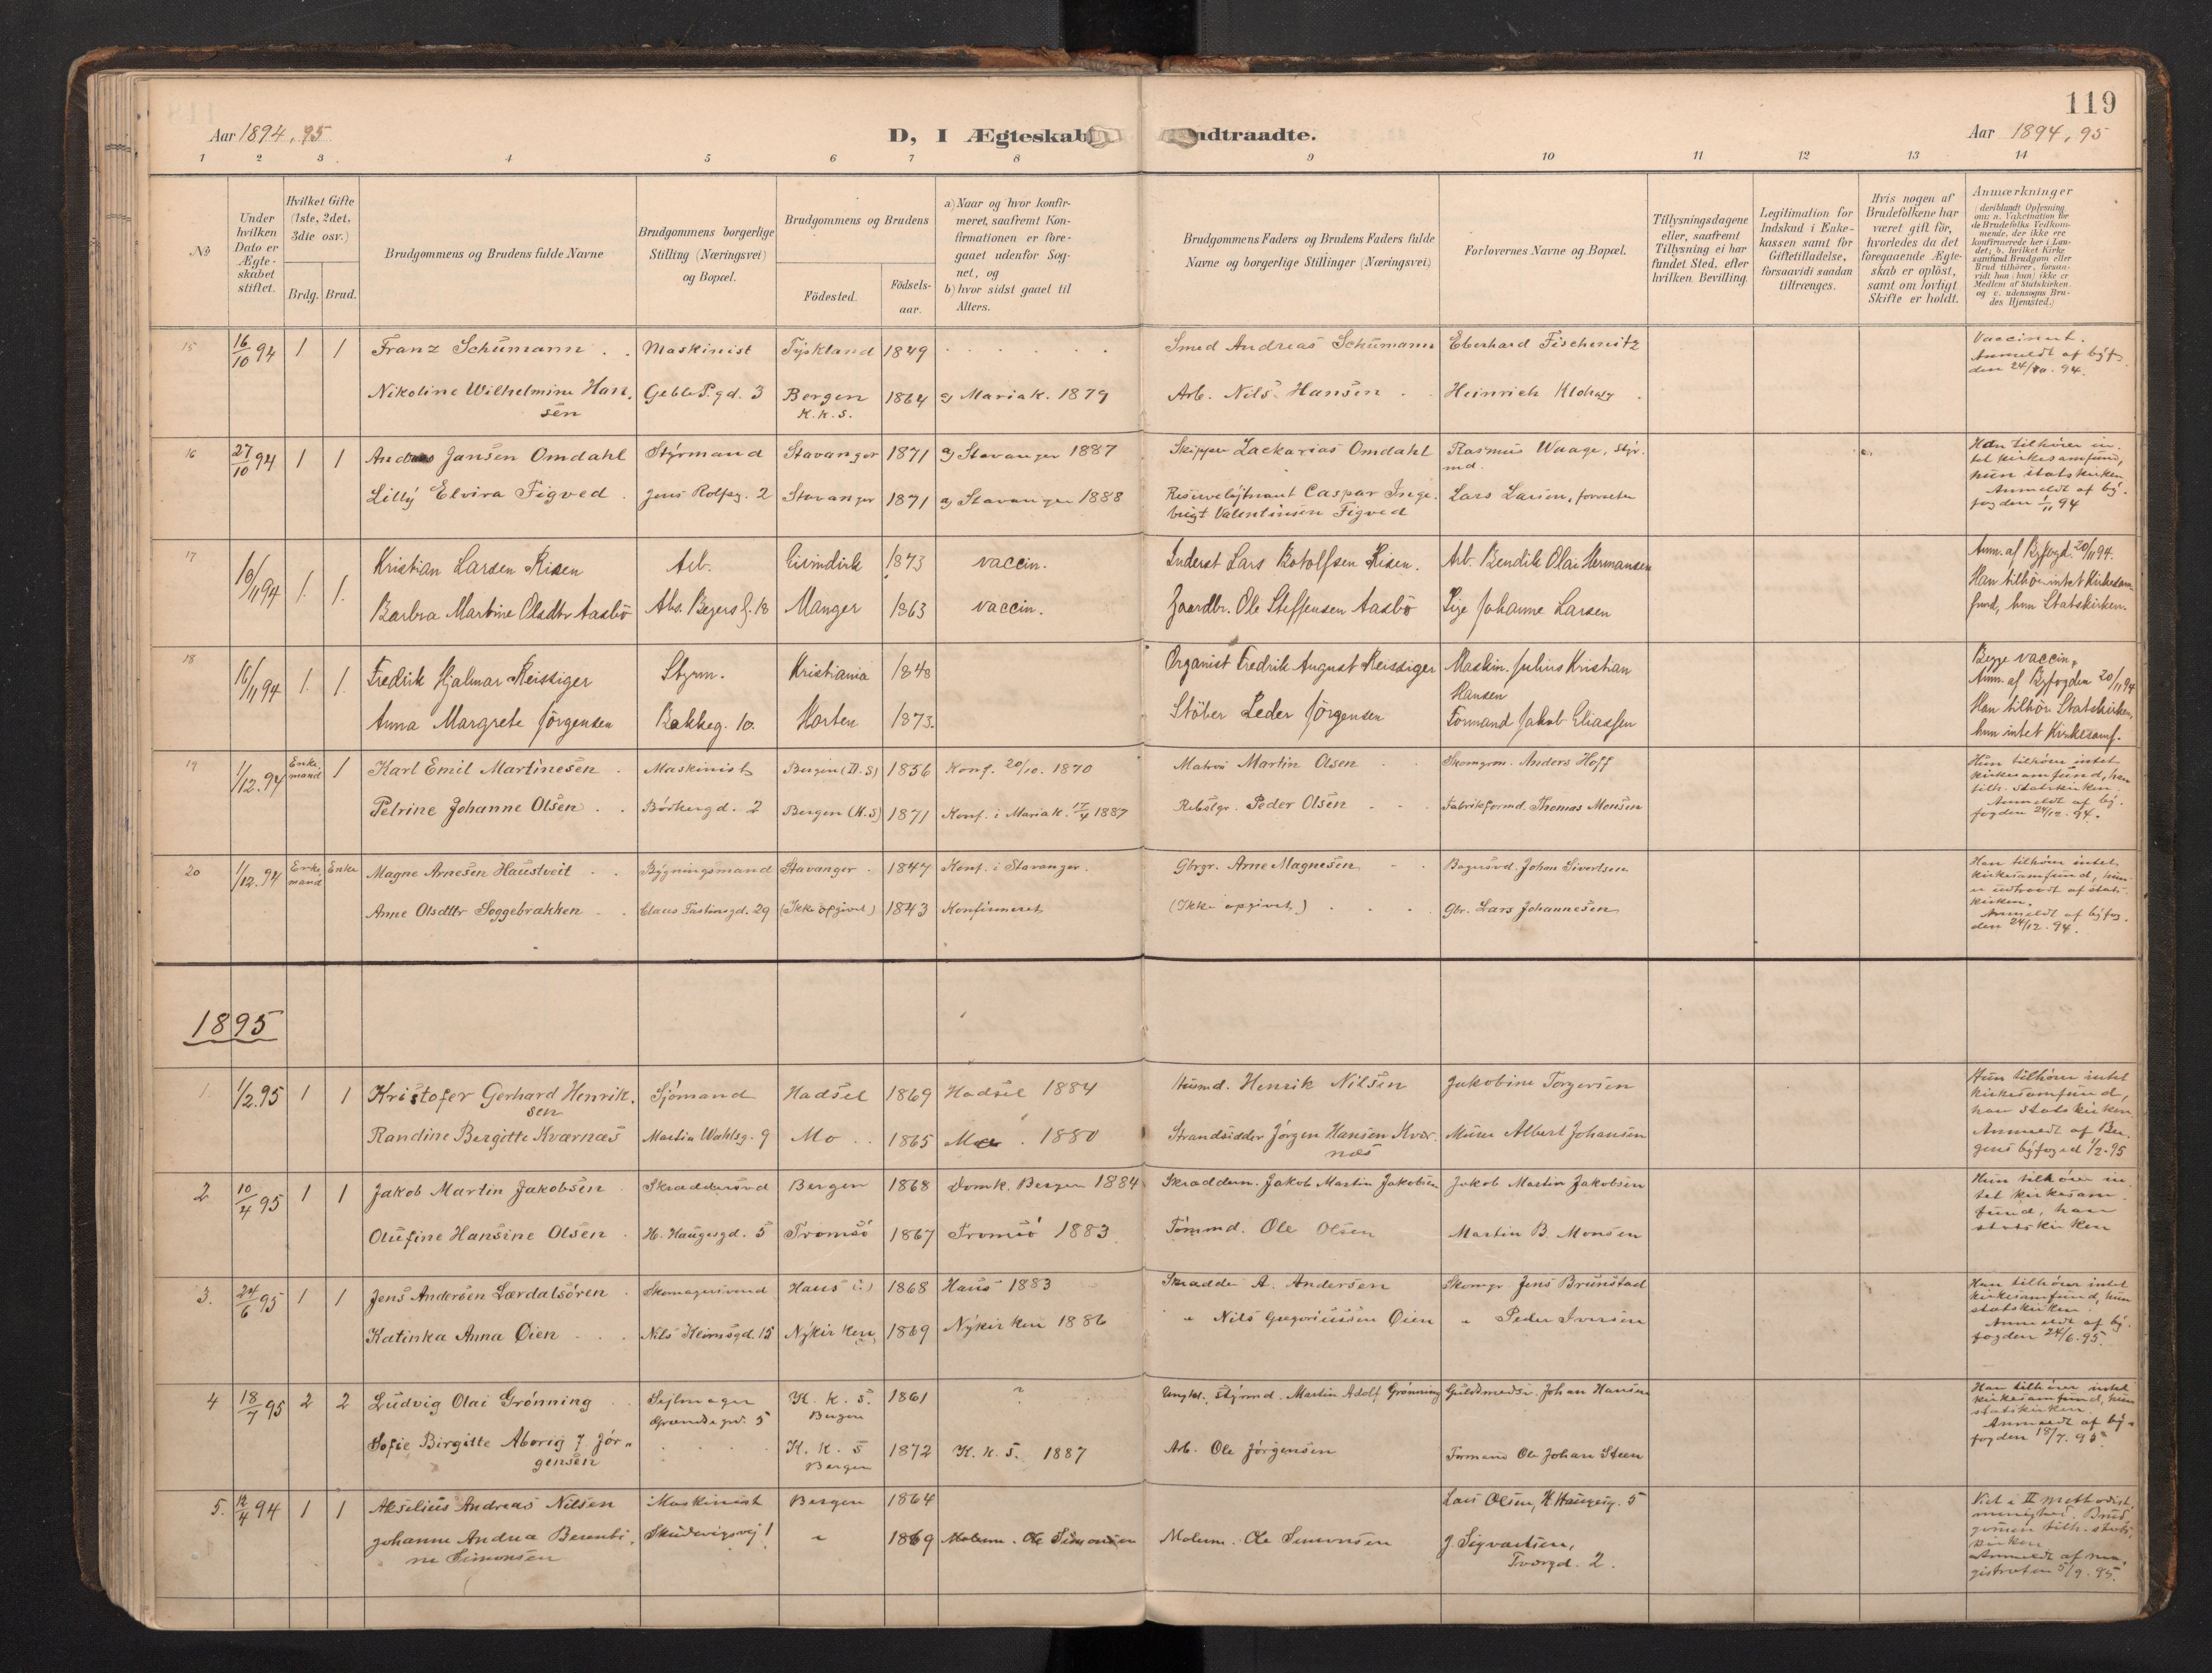 119
Aar 1894, 95
D, I Ægteskab
ndtraadte.
Aar 1894, 95
1 2 3 4 5 6 7 8 9 10 11 12 13 14
№
Under hvilken Dato er Ægte-skabet stiftet.
Hvilket Gifte (1ste, 2det, 3die osv.)
Brdg. Brud.
Brudgommens og Brudens fulde Navne
Brudgommens borgerlige Stilling (Næringsvei) og Bopæl.
Brudgommens og Brudens
Födested.
Födsels-aar.
a) Naar og hvor konfir-meret, saafremt Kon-firmationen er fore-gaaet udenfor Sog-net, og
b) hvor sidst gaaet til Alters.
Brudgommens Faders og Brudens Faders fulde Navne og borgerlige Stillinger (Næringsvei)
Forlovernes Navne og Bopæl.
Tillysningsdagene eller, saafremt Tillysning ei har fundet Sted, efter hvilken Bevilling.
Legitimation for Indskud i Enke-kassen samt for Giftetilladelse, forsaavidt saadan tiltrænges.
Hvis nogen af Brudefolkene har været gift för, hvorledes da det foregaaende Ægte-skab er oplöst, samt om lovligt Skifte er holdt.
Anmærkninger
(deriblandt Oplysning om: a. Vakcination for de Brudefolks Vedkom-mende, der ikke ere konfirmerede her i Lan-det; b. hvilket Kirke-samfund Brudgom eller Brud tilhörer, forsaa-vidt han (hun) ikke er Medlem af Statskirken, og c. udensogns Bru-des Hjemsted.)
15 16/10 94 1 1 Franz Schumann Maskinist Tyskland 1849 Smed Andreas Schumann Eberhard Fischenitz Vaccinert.
Nikoline Wilhelmine Han- Geble P.gd. 3 Bergen 1864 a) Mariak. 1879 Arb. Nils Hansen Heinrich Anmeldt af byfog
sen K.K.S. den 24/10. 94.
16 27/10 94 1 1 Jansen Omdahl Styrmand Stavanger 1871 a) Stavanger 1887 Skipper Zackarias Omdahl Rasmus Waage, Styr- Han tilhører in-
md. tet kirkesamfund,
Lilly Elvira Figved Jens Rolfsg. 2 Stavanger 1871 a) Stavanger 1888 Caspar Inge- Lars Larsen, hun statskirken
brigt Valentinsen Figved Anmeldt af by-
fogden 1/11 94
17 10/11 94 1. 1. Kristian Larsen Risen Arb. Eivindvik 1873 vaccin. Inderst Lars Botolfsen Risen. Arb. Bendik Olai Hermansen Anm. af Byfogd. 20/11 94.
Barbra Martine Olsdtr Aasbö Abs. Beyers g. 18 Manger 1863 vaccin. Gaardbr. Ole Steffensen Aasbö Pige Johanne Larsen Han tilhör intet Kirkesam-
fund, hun Statskirken.
18 16/11 94 1. 1. Fredrik Hjalmar Reissiger Styrm. Kristiania 1848 Organist Fredrik August Reissiger Maskin. Julius Kristian Begge vaccin.
Hansen Anm. af Byfogden 20/11 94
Anna Margrete Jörgensen Bakkeg. 10. Horten 1873. Stöber Peder Jörgensen Formand Jakob Eliassen Han tilhör. Statskirken,
hun intet Kirkesamf.
19 1/12. 94 Enke-mand 1 Karl Emil Martinesen Maskinist Bergen (D.S) 1856 Konf. 20/10. 1870 Matros Martin Olsen Skomgrm. Anders Hoff Hun tilhører intet
kirkesamfund, han
Petrine Johanne Olsen Börkengd. 2 Bergen (K.S) 1871 Konf. i Mariak. 17/4 1887 Rebslgr. Peder Olsen Fabrikformd. Thomas Monsen tilh. statskirken
Anmeldt af by-
fogden 24/12. 94.
20 1/12. 94 Enke-mand Enke Magne Arnesen Haustveit Bygningsmand Stavanger 1847 Konf. i Stavanger. Gbrgr. Arne Magnesen Bagersvd. Johan Sivertsen Han tilhører intet
kirkesamfund, hun
Anne Olsdttr Soggebrækken Claus Fastingsgd. 29 (Ikke opgivet) 1843 Konfirmeret (Ikke opgivet) Gbr. Lars Johannesen er udtraadt af stats-
kirken.
Anmeldt af byfog-
den 24/12. 94.
1895
1. 1/2. 95 1 1 Kristofer Gerhard Henrik- Sjømand Hadsel 1869 Hadsel 1884 Husmd. Henrik Nilsen Jakobine Torgersen Hun tilhører intet
sen kirkesamfund,
Randine Bergitte Kværnæs Martin Wahlsg. 9 Mo 1865 1880 Strandsidder Jørgen Hansen Kvær- Murer Albert Johansen han statskirken
næs Anmeldt af Ber-
gens byfoged 1/2. 95
2 10/4 95 1 1 Jakob Martin Jakobsen Skræddersvd Bergen 1868 Domk. Bergen 1884 Skræddrm. Jakob Martin Jakobsen Jakob Martin Jakobsen Hun tilhører in-
tet kirkesam-
Olufine Hansine Olsen H. Haugesgd. 5 Tromsö 1867 Tromsö 1883 Tømmd. Ole Olsen Martin B. Monsen fund, han
statskirken
3. 24/6 95 1 1 Jens Andersen Lærdalsören Skomagersvend Haus 1868 Haus 1883 Skrædder A. Andersen Skomgr Jens Brunstad Han tilhører intet
kirkesamfund, hun
Katinka Anna Øien Nils Klimsgd. 15 Nykirken 1869 Nykirken 1886 " Nils Gregoriussen Øien " Peder Iversen statskirken.
Anmeldt af by-
fogden 24/6. 95.
4 18/7 95 2 2 Ludvig Olai Grønning Sejlmager K. k. S. 1861 ? Ungkl. styrmd. Martin Adolf Grønning Guldsmedsv. Johan Hansen Han tilhører intet
5 Bergen kirkesamfund, hun
Sofie Birgitte Aborig f. Jör- K. K. S 1872 K. K. S. 1887 Arb. Ole Jörgensen Formand Ole Johan Steen statskirken
gensen Bergen Anmeldt af by-
fogden 18/7. 95
5. 12/4 94 1 1 Akselius Andreas Nilsen Maskinist Bergen 1864 Lars Olsen, H Haugesg. 5 Viet i II methodist-
menighed. Brud-
Johanne Andrea Berenti- 1 " 1869 Molerm. Ole Simonsen Molerm. Ole Simonsen J. Sigvartsen, gommen tilh. stats-
ne Simonsen Tværgd. 2. kirken
Anmeldt af ma-
gistraten 5/9. 95.